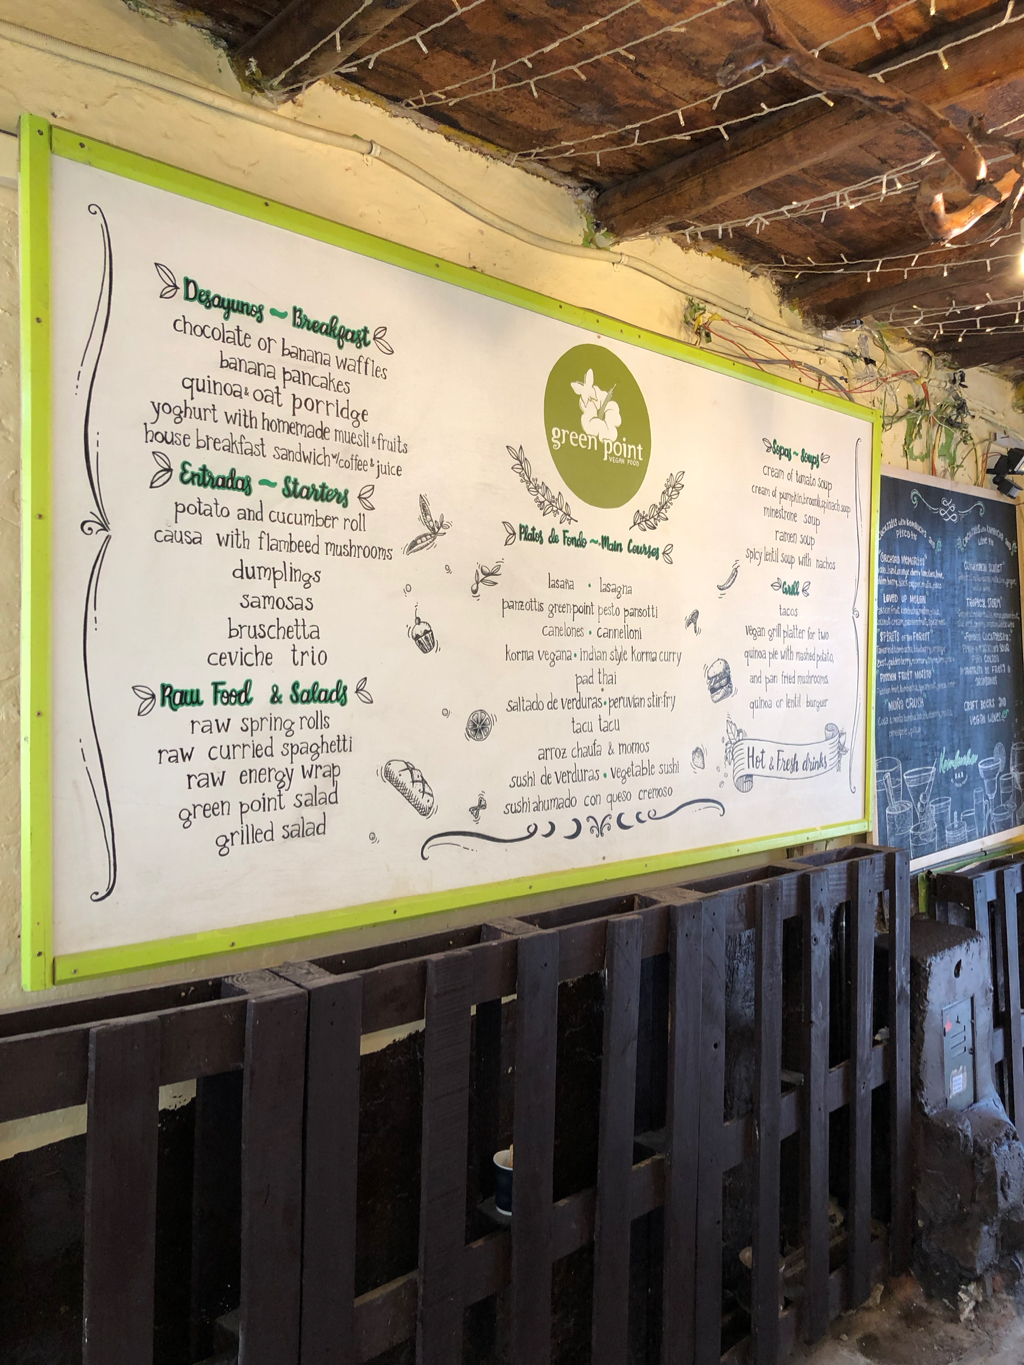 Desayunos ~ Breakfast
chocolate or banana waffles
banana pancakes
quinoa & oat porridge
yoghurt with homemade muesli & fruits
house breakfast sandwich w/ coffee & juice
Entradas ~ Starters
potato and cucumber roll
causa with flambeed mushrooms
dumplings
samosas
bruschetta
ceviche trio
Raw Food & Salads
raw spring rolls
raw curried spaghetti
raw energy wrap
green point salad
grilled salad
green point
VEGAN FOOD
Platos de Fondo ~ Main Courses
lasaña • lasagna
panzottis greenpoint pesto pansotti
canelones • cannelloni
korma vegana • indian style korma curry
pad thai
saltado de verduras • peruvian stir fry
tacu tacu
arroz chaufa & momos
sushi de verduras • vegetable sushi
sushi ahumado con queso cremoso
Sopas ~ Soups
cream of tomato soup
cream of pumpkin, broccoli, spinach soup
minestrone soup
ramen soup
spicy lentil soup with nachos
Grill
tacos
vegan grill platter for two
quinoa pie with mashed potato,
and pan fried mushrooms
quinoa or lentil burguer
Hot & Fresh drinks
ORCHARD MEMORIES
LOVED UP MELON
SPIRITS of the FOREST
PASSION FRUIT MOJITO
MUÑA CRUSH
TROPICAL STORM
CRAFT BEERS AND
VEGAN WINES